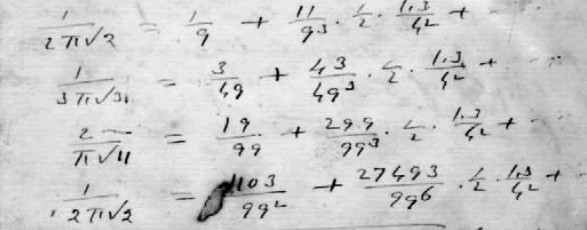 1/(2π√2) = 1/9 + 11/9³ · 1/2 · 1.3/4² + ...
1/(3π√3) = 3/49 + 43/49³ · 1/2 · 1.3/4² + ...
2/(π√11) = 19/99 + 299/99³ · 1/2 · 1.3/4² + ...
1/(2π√2) = 1103/99² + 27493/99⁶ · 1/2 · 1.3/4² + ...